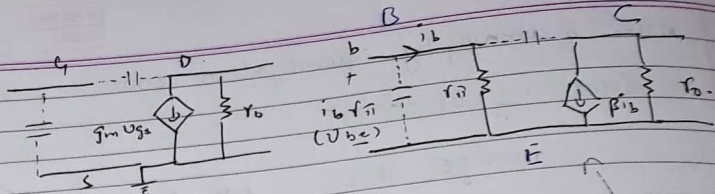 B
C
G
D
b
ib
+
gm Vgs
ro
ib rπ
(Vbe)
rπ
βib
ro.
S
E